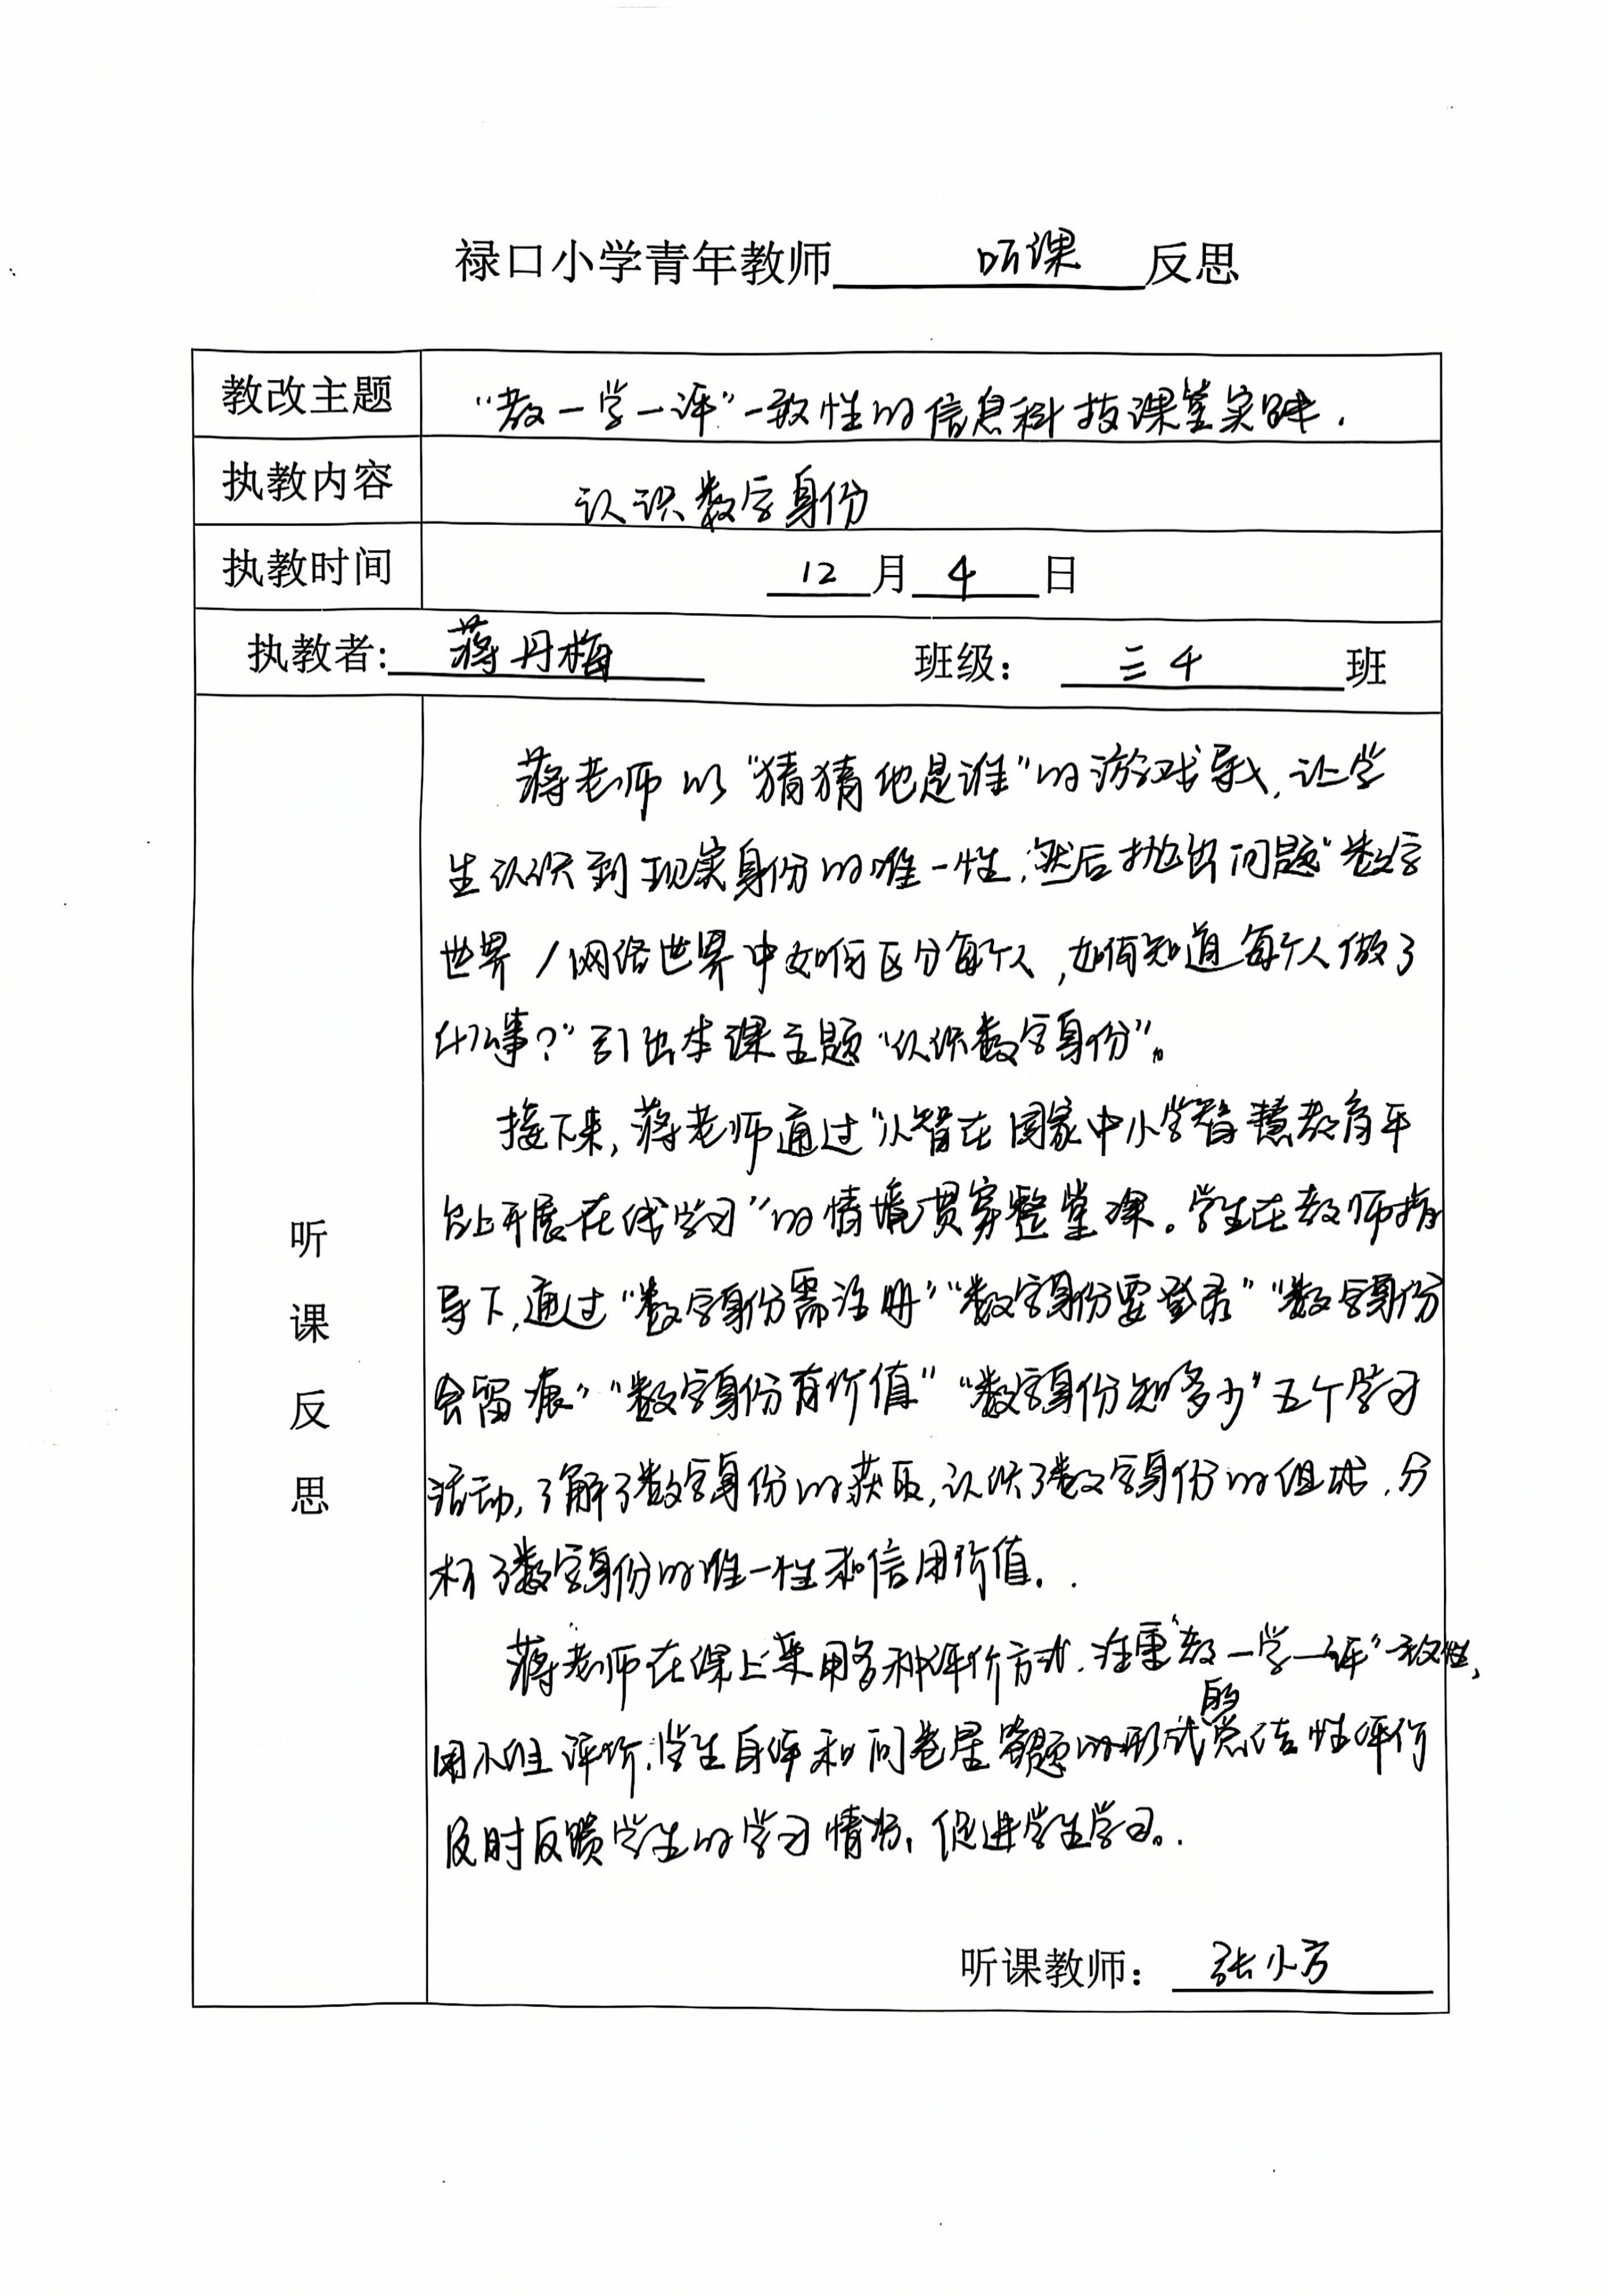 禄口小学青年教师 听课 反思
教改主题 “教—学—评”一致性的信息科技课堂实践.
执教内容 认识数字身份
执教时间 12 月 4 日
执教者: 蒋丹梅 班级: 三4 班
听课反思
蒋老师以“猜猜他是谁”的游戏导入,让学
生认识到现实身份的唯一性,然后抛出问题“数字
世界/网络世界中如何区分每个人,如何知道每个人做了
什么事?”引出本课主题“认识数字身份”。
接下来,蒋老师通过“小智在国家中小学智慧教育平
台上开展在线学习”的情境贯穿整堂课。学生在教师指
导下,通过“数字身份需注册”“数字身份要登录”“数字身份
会留痕”“数字身份有价值”“数字身份知多少”五个学习
活动,了解了数字身份的获取,认识了数字身份的组成,分
析了数字身份的唯一性和信用价值.
蒋老师在课上采用多种评价方式,注重“教—学—评”一致性,
用小组评价,学生自评和问卷星答题的形式的总结性评价
及时反馈学生的学习情况,促进学生学习。
听课教师: 张小方